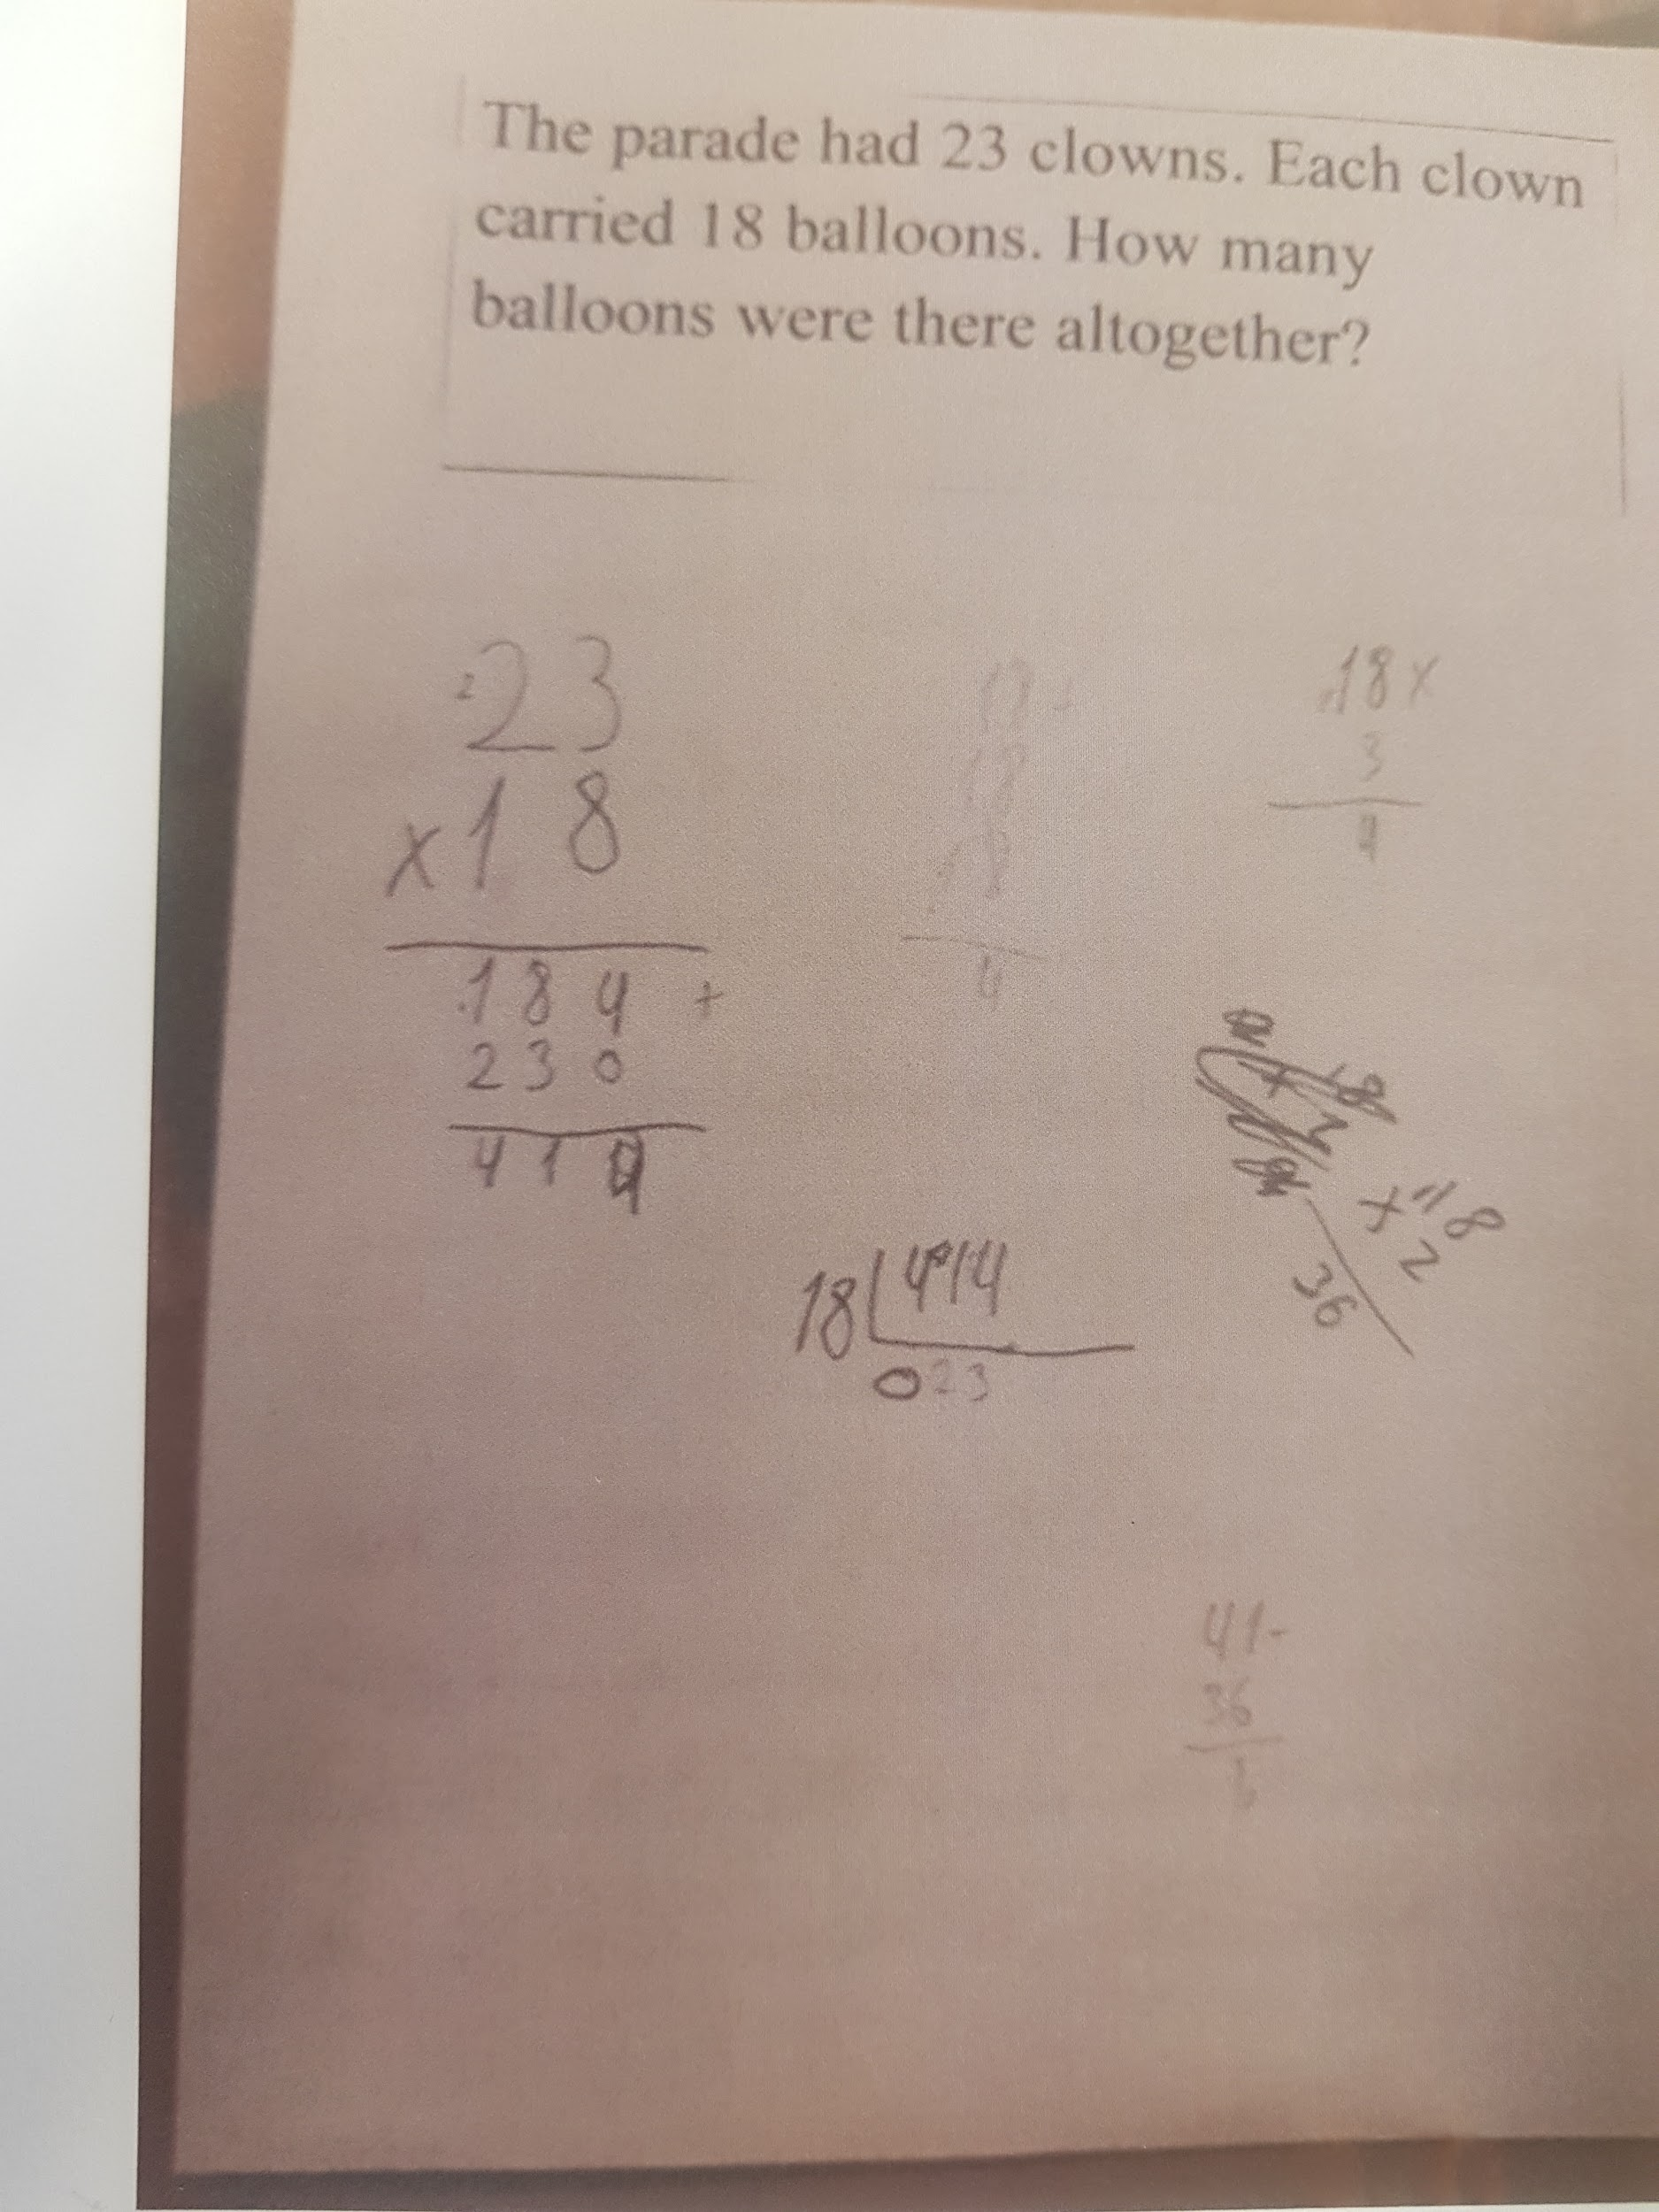 The parade had 23 clowns. Each clown
carried 18 balloons. How many
balloons were there altogether?
2 23
x 18
184 +
230
414
18x
3
4
18
4
x 18
2
36
18 414
023
41-
36